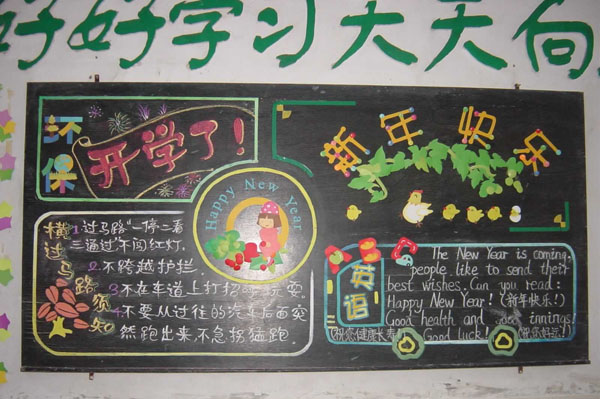 好好学习天天向
环保
开学了!
新年快乐
Happy New Year
横过马路须知
1.过马路“一停二看
三通过”不闯红灯.
2.不跨越护拦.
3.不在车道上打招 玩耍.
4.不要从过往的汽车后面突
然跑出来,不急拐猛跑.
英语
The New Year is coming.
people like to send their
best wishes. Can you read:
Happy New Year! (新年快乐!)
Good health and good innings!
(祝您健康长寿) Good luck! (祝您好运!)